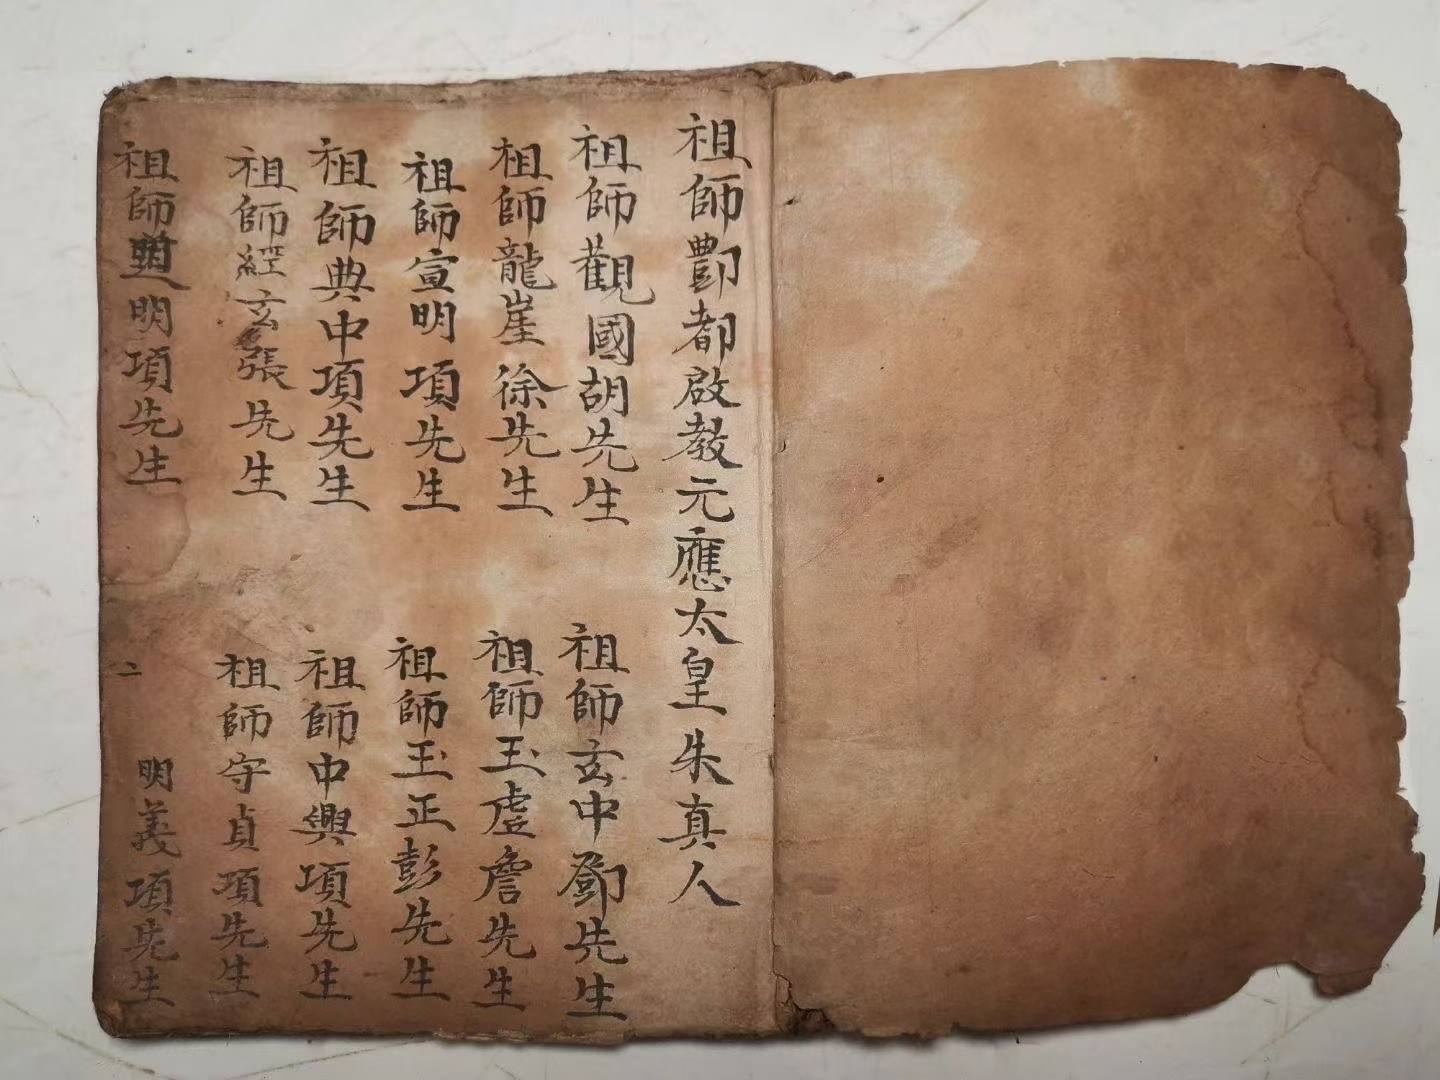 祖師酆都啟教元應太皇朱真人
祖師觀國胡先生
祖師玄中鄧先生
祖師龍崖徐先生
祖師玉虛詹先生
祖師宣明項先生
祖師玉正彭先生
祖師典中項先生
祖師中興項先生
祖師經玄張先生
祖師守貞項先生
祖師道明項先生
二
明義項先生